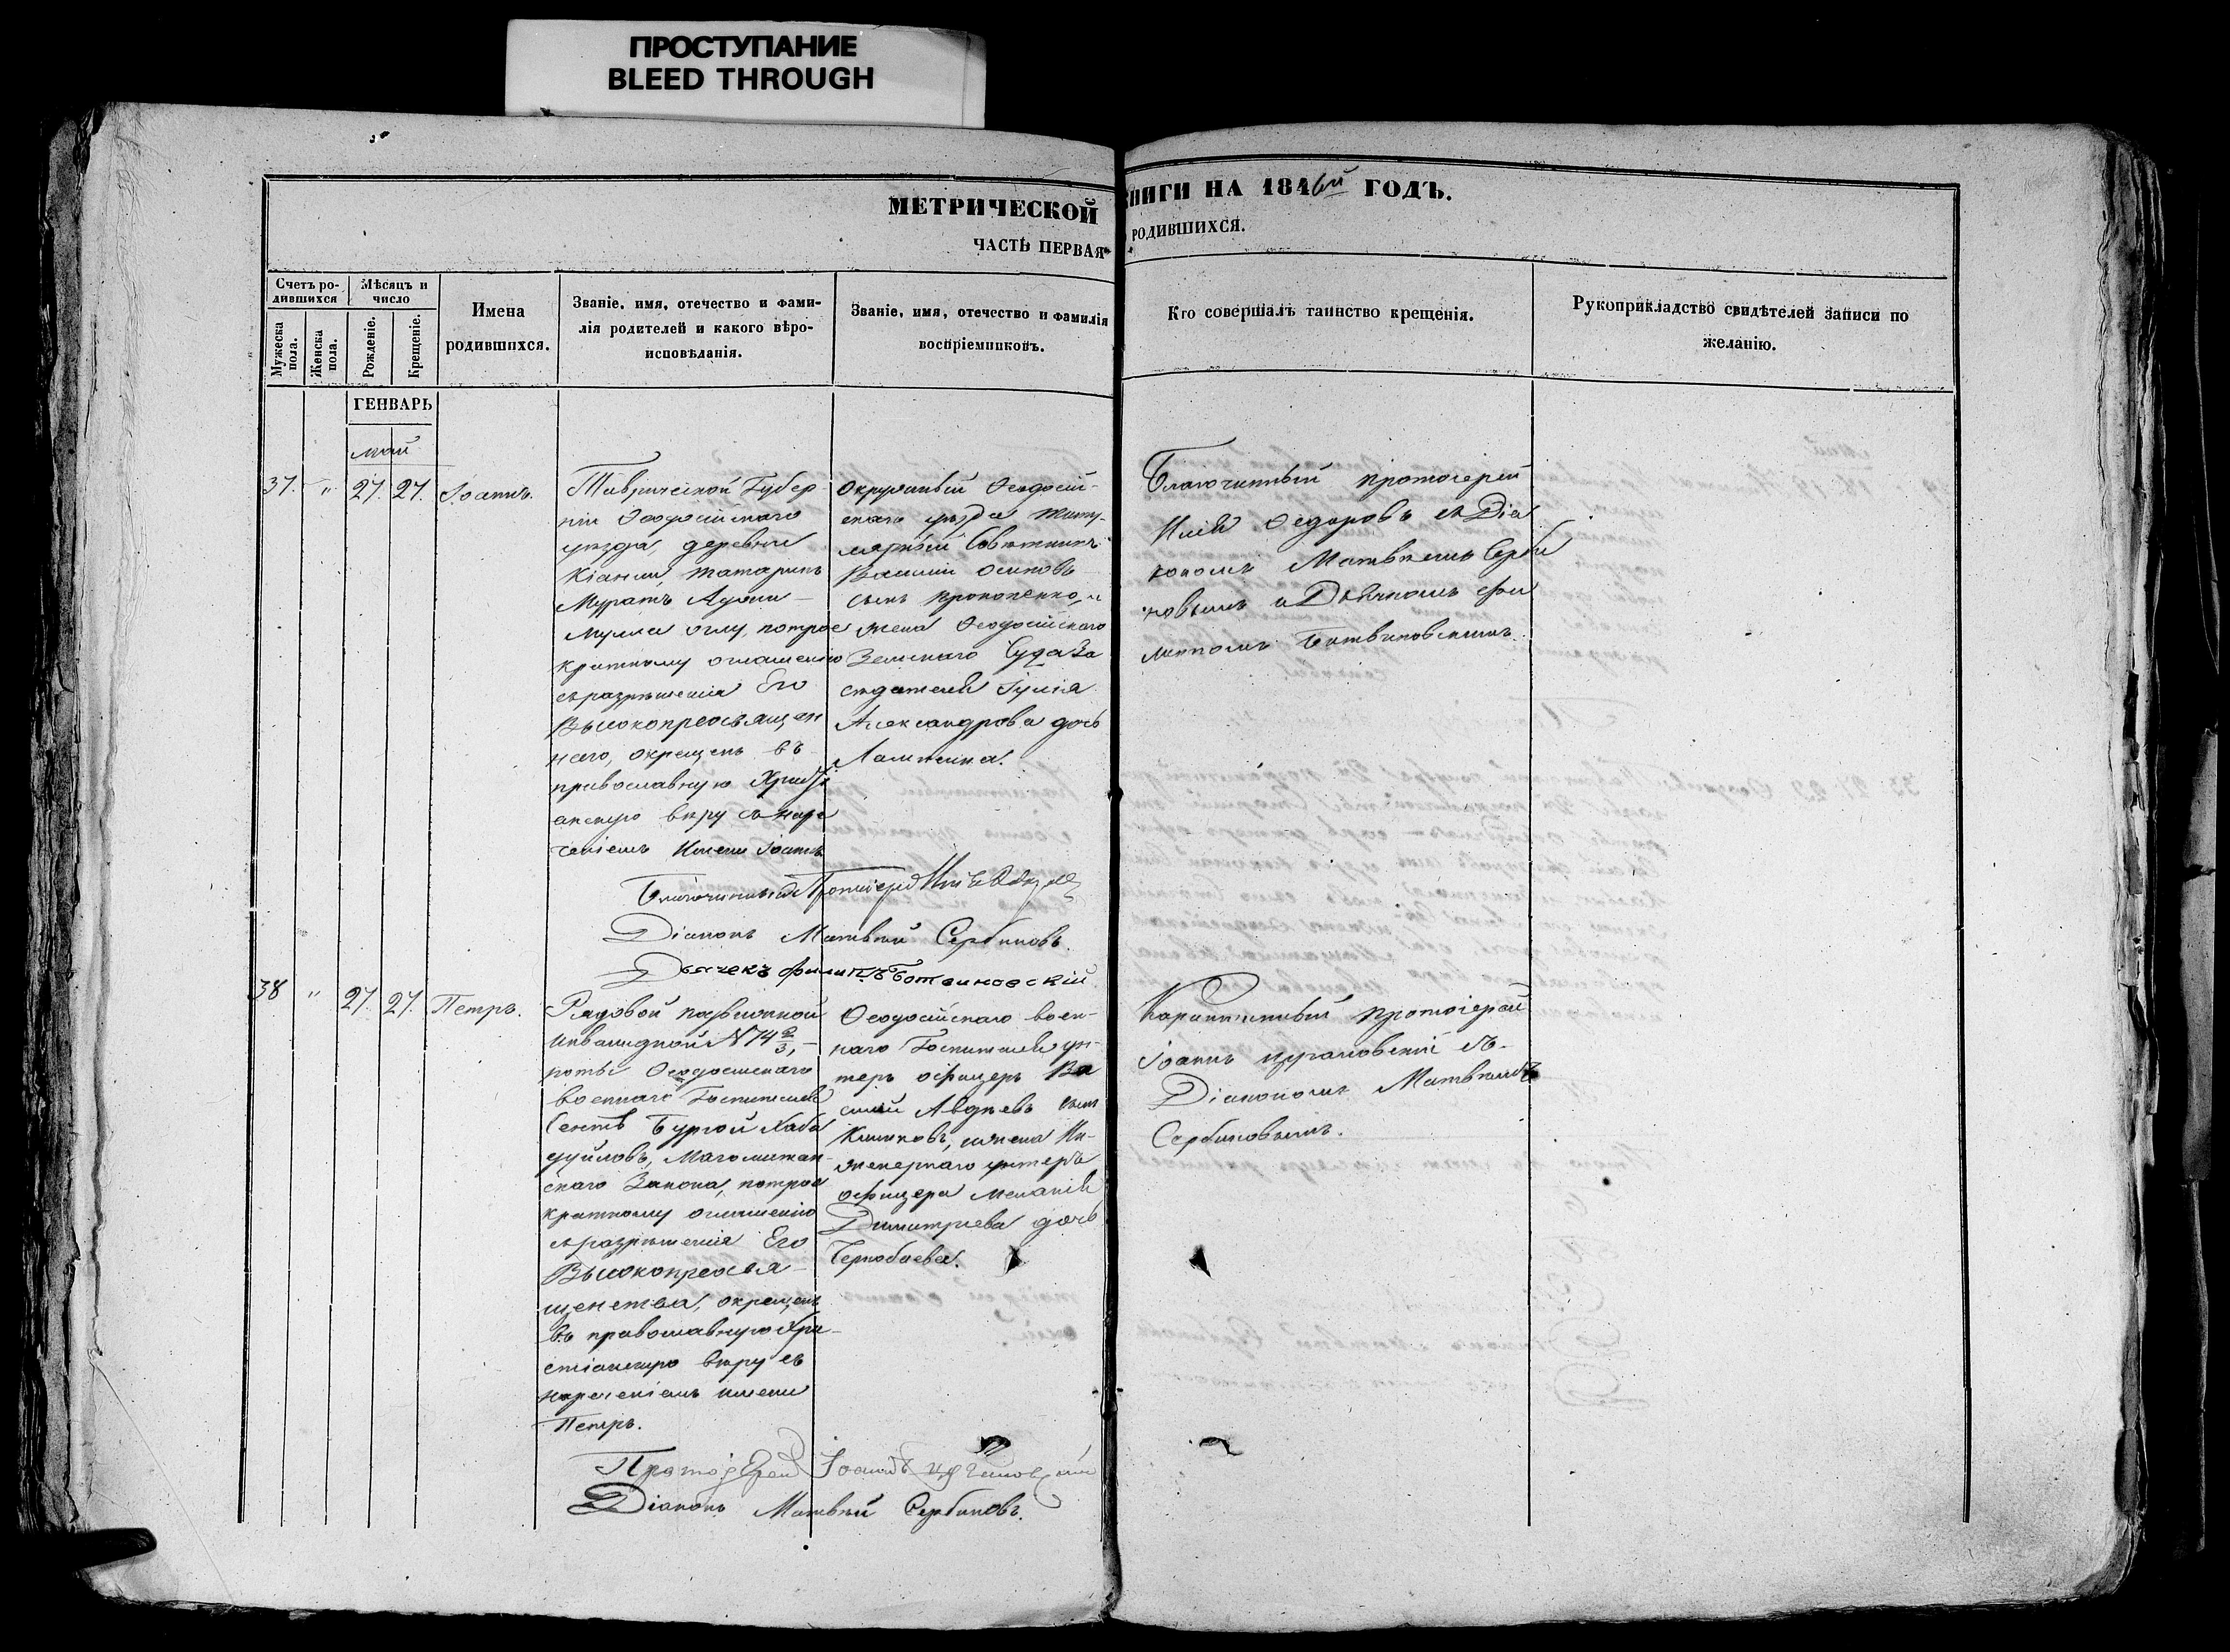 ПРОСТУПАНИЕ
BLEED THROUGH
МЕТРИЧЕСКОЙ КНИГИ НА 1846й ГОДЪ.
ЧАСТЬ ПЕРВАЯ РОДИВШИХСЯ.
Счетъ ро-
дившихся
Мужеска
пола.
Женска
пола.
Мѣсяцъ и
число
Рожденіе.
Крещеніе.
Имена
родившихся.
Званіе, имя, отечество и фами-
лія родителей и какого вѣро-
исповѣданія.
Званіе, имя, отечество и фамилія
воспріемниковъ.
Кто совершалъ таинство крещенія.
Рукоприкладство свидѣтелей записи по
желанію.
ГЕНВАРЬ
май
37. " 27. 27. Іоаннъ.
Таврической Губер-
ніи Ѳеодосійскаго
уѣзда, деревни
Кіанлы, татаринъ
Муратъ
Мулла оглу, потрое
кратному оглашенію
съ разрѣшенія Его
Высокопреосвящен
наго, окрещенъ въ
православную Христі
анскую вѣру съ наре
ченіемъ имени Іоаннъ
Окружный Ѳеодосій-
скаго уѣзда Титу-
лярный Совѣтникъ
Василій Осиповъ
сынъ Прокопенко, и
жена Ѳеодосійскаго
Земскаго Суда За
сѣдателя Іулія
Александрова дочь
Благочинный протоіерей
Илія Ѳедоровъ съ Діа
кономъ Матвѣемъ Серби
новымъ и Дьячкомъ Фи
липомъ Ботвиновскимъ.
Благочинный Протоіерей Илія
Діаконъ Матвѣй Сербиновъ.
Дьячекъ Филипъ Ботвиновскій
38 " 27. 27. Петръ.
Рядовой подвижной
инвалидной № 14 2/3,
роты Ѳеодосійскаго
военнаго Госпиталя
Бургой Хаби
дуйловъ, Магометан-
скаго Закона, потрое
кратному оглашенію
съ разрѣшенія Его
Высокопреосвя-
щенства, окрещенъ
въ православную Хри-
стіанскую вѣру съ
нареченіемъ имени
Петръ.
Ѳеодосійскаго воен-
наго Госпиталя ун-
теръ офицеръ Ва
силій Авдѣевъ сынъ
и жена Ин-
женернаго унтеръ
офицера Меланія
Димитріева дочь
Чернобаева.
Карантинный протоіерей
Іоаннъ съ
Діакономъ Матвѣемъ
Сербиновымъ.
Протоіерей Іоаннъ
Діаконъ Матвѣй Сербиновъ.